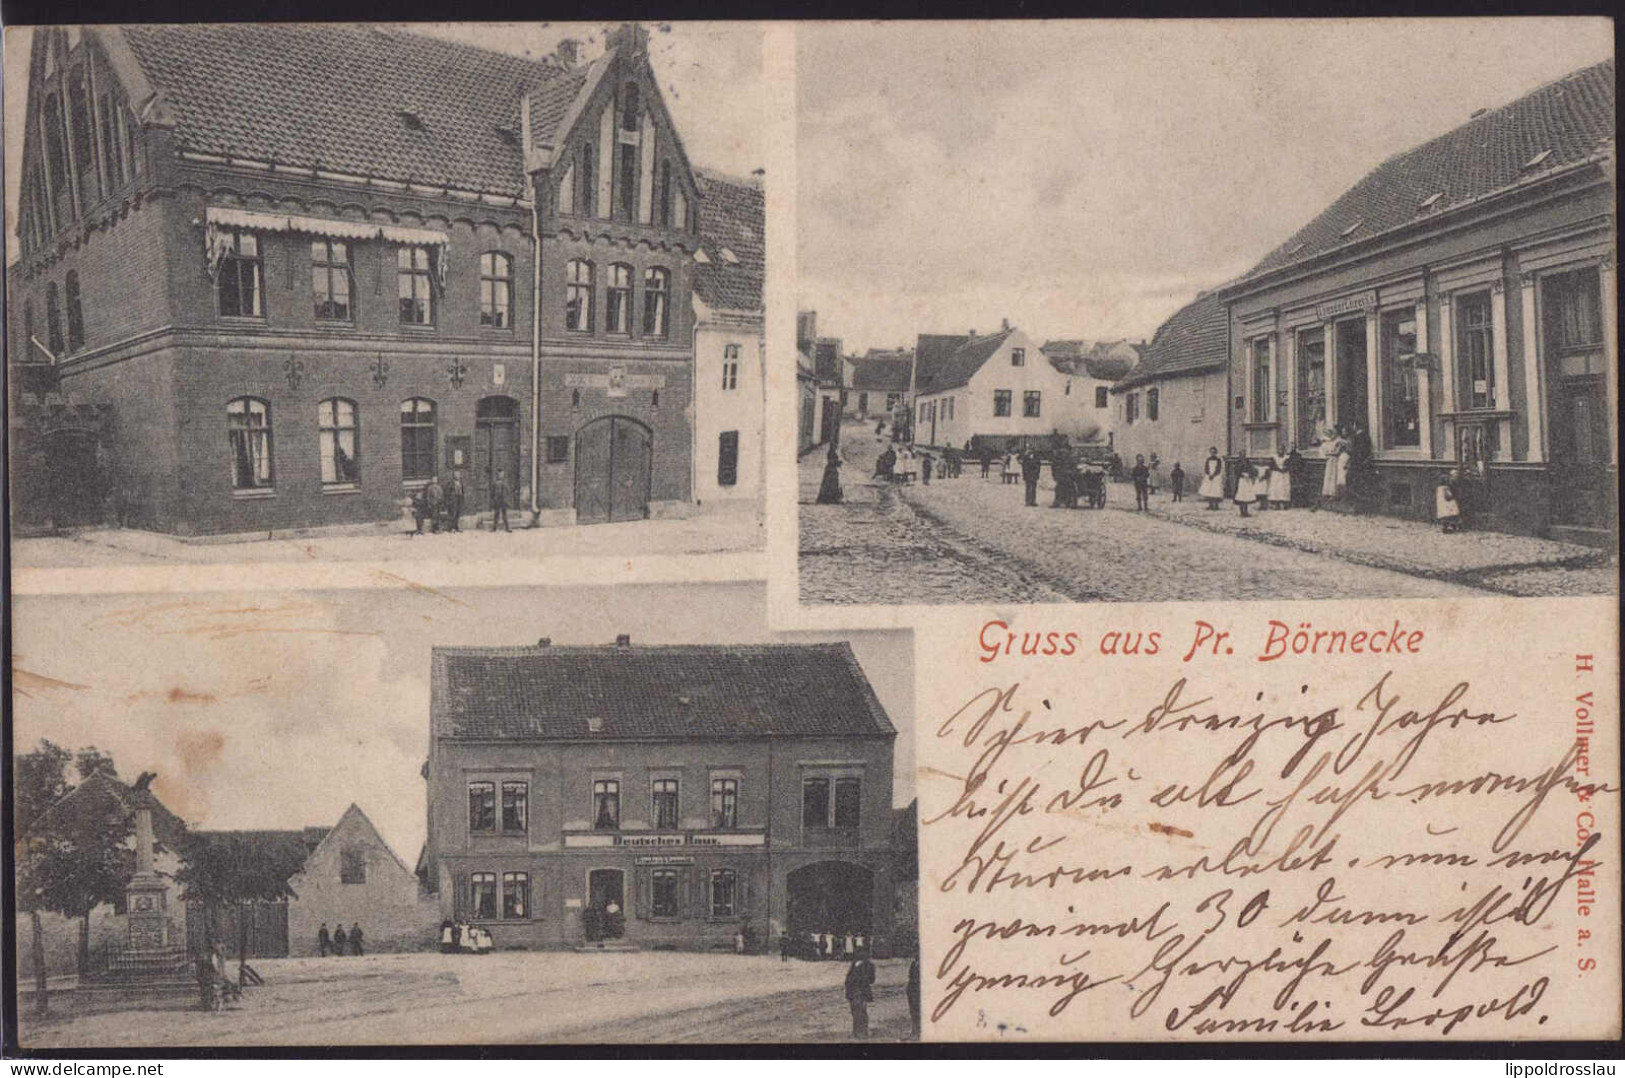 Deutsches Haus.
Gruss aus Pr. Börnecke
Schier dreizig Jahre
bist Du alt hast manchen
Sturm erlebt. nun noch
zweimal 30 dann ists
genug Herzliche Grüße
Familie Leopold.
H. Vollmer & Co. Halle a. S.
lippoldrosslau